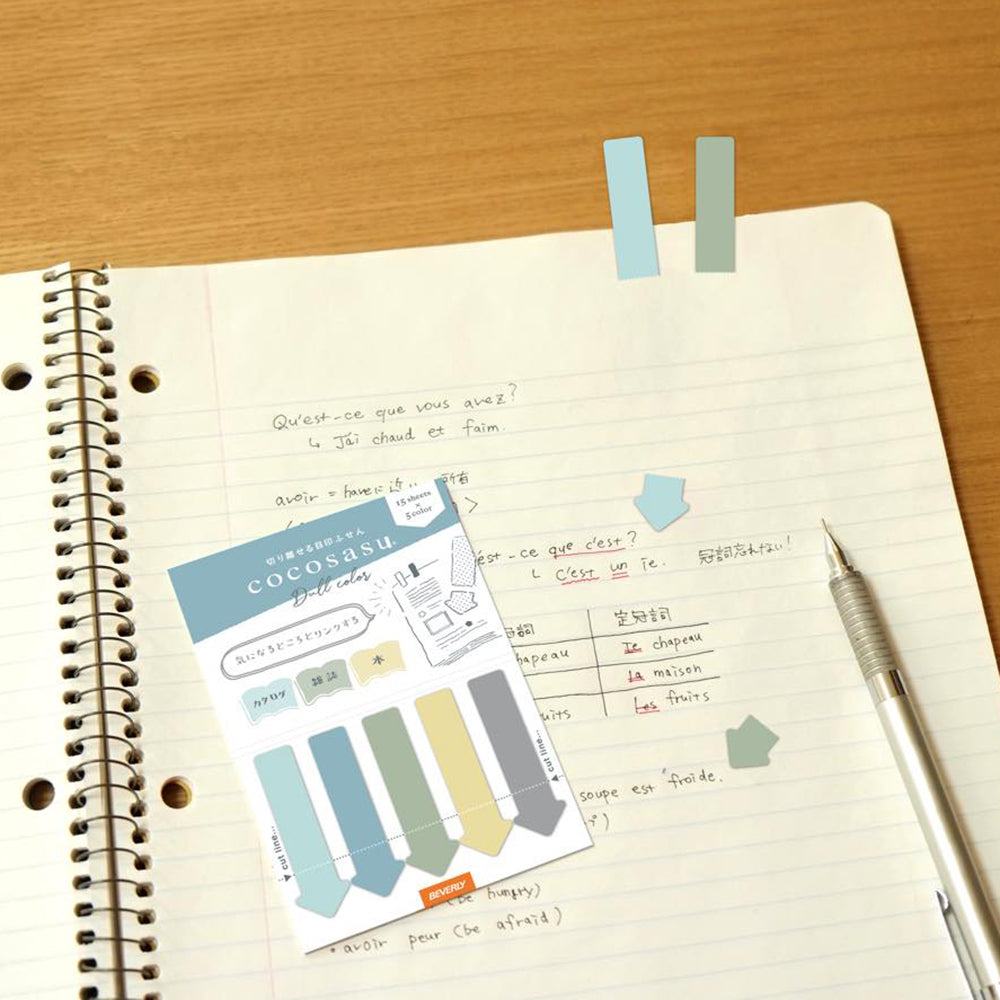 Qu'est-ce que vous avez?
↳ J'ai chaud et faim.
avoir = haveに近い 所有
est-ce que c'est?
↳ C'est un ie.
冠詞忘れない!
冠詞
定冠詞
hapeau
Le chapeau
la maison
uits
Les fruits
soupe est froide.
(be hungry)
• avoir peur (be afraid)
15 sheets
×
5 color
切り離せる目印ふせん
cocosasu
Dull color
気になるところとリンクする
カタログ
雑誌
本
cut line...
cut line...
BEVERLY